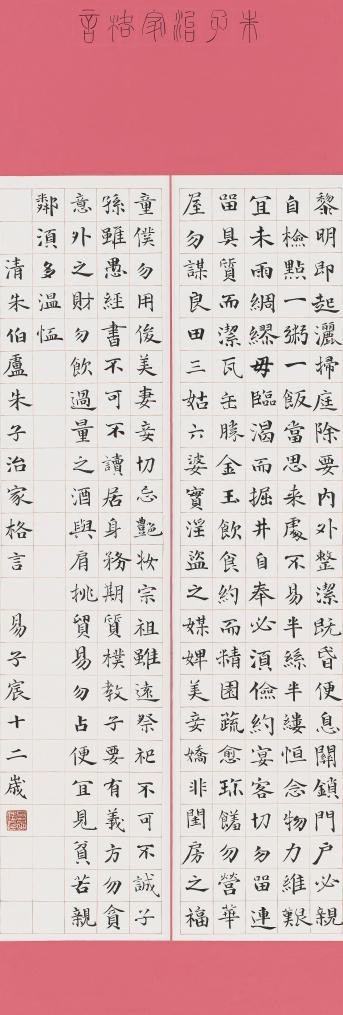 朱子治家格言
黎明即起灑掃庭除要內外整潔既昏便息關鎖門戶必親
自檢點一粥一飯當思來處不易半絲半縷恒念物力維艱
宜未雨綢繆毋臨渴而掘井自奉必須儉約宴客切勿留連
器具質而潔瓦缶勝金玉飲食約而精園蔬愈珍饈勿營華
屋勿謀良田三姑六婆實淫盜之媒婢美妾嬌非閨房之福
童僕勿用俊美妻妾切忌艷妝宗祖雖遠祭祀不可不誠子
孫雖愚經書不可不讀居身務期質樸教子要有義方勿貪
意外之財勿飲過量之酒與肩挑貿易勿占便宜見貧苦親
鄰須多溫恤
清朱伯廬朱子治家格言 易子宸十二歲